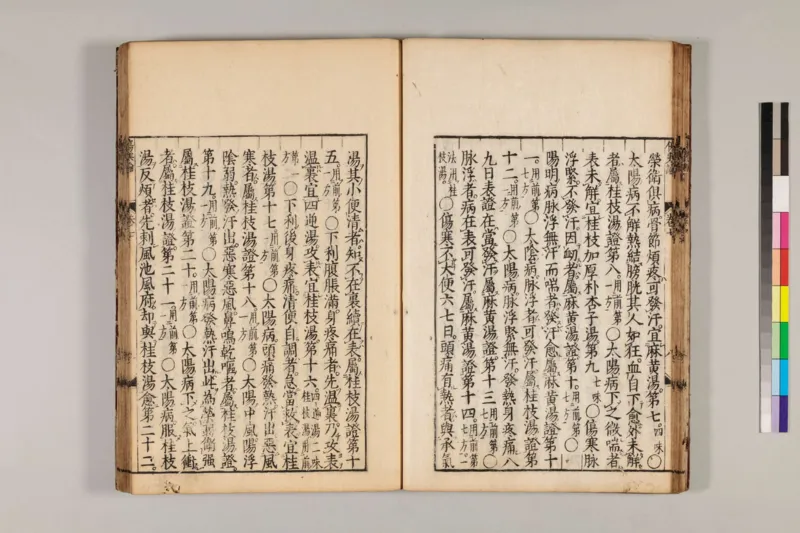 榮衛俱病骨節煩疼可發汗宜麻黃湯第七四味○
太陽病不解熱結膀胱其人如狂血自下愈外未解
者屬桂枝湯證第八用前第一方○太陽病下之微喘者
表未解宜桂枝加厚朴杏子湯第九七味○傷寒脉
浮緊不發汗因衂者屬麻黃湯證第十用前第七方○
陽明病脉浮無汗而喘者發汗愈屬麻黃湯證第十
一用前第七方○太陰病脉浮者可發汗屬桂枝湯證第
十二用前第一方○太陽病脉浮緊無汗發熱身疼痛八
九日表證在當發汗屬麻黃湯證第十三用前第七方○
脉浮者病在表可發汗屬麻黃湯證第十四用前第七方一
法用桂枝湯○傷寒不大便六七日頭痛有熱者與承氣
湯其小便清者知不在裏續在表屬桂枝湯證第十
五用前第一方○下利腹脹滿身疼痛者先溫裏乃攻表
溫裏宜四逆湯攻表宜桂枝湯第十六四逆湯三味桂枝湯用前
第一方○下利後身疼痛清便自調者急當救表宜桂
枝湯第十七用前第一方○太陽病頭痛發熱汗出惡風
寒者屬桂枝湯證第十八用前第一方○太陽中風陽浮
陰弱熱發汗出惡寒惡風鼻鳴乾嘔者屬桂枝湯證
第十九用前第一方○太陽病發熱汗出此為榮弱衛強
屬桂枝湯證第二十用前第一方○太陽病下之氣上衝
者屬桂枝湯證第二十一用前第一方○太陽病服桂枝
湯反煩者先刺風池風府却與桂枝湯愈第二十二